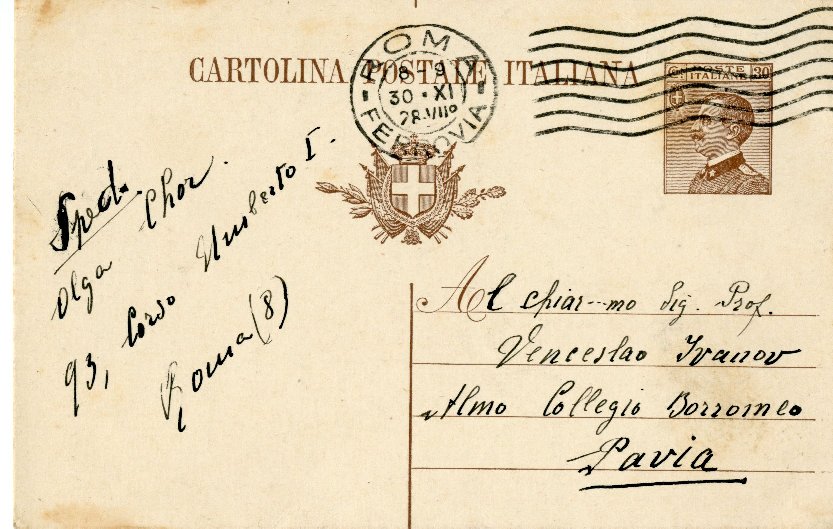 CARTOLINA POSTALE ITALIANA
ROMA
FERROVIA
8-9
30·XI
28·VII°
Ct POSTE 30
ITALIANE
Sped.
Olga Chor.
93, Corso Umberto I.
Roma (8)
Al chiar--mo Sig. Prof.
Venceslao Ivanov
Almo Collegio Borromeo
Pavia